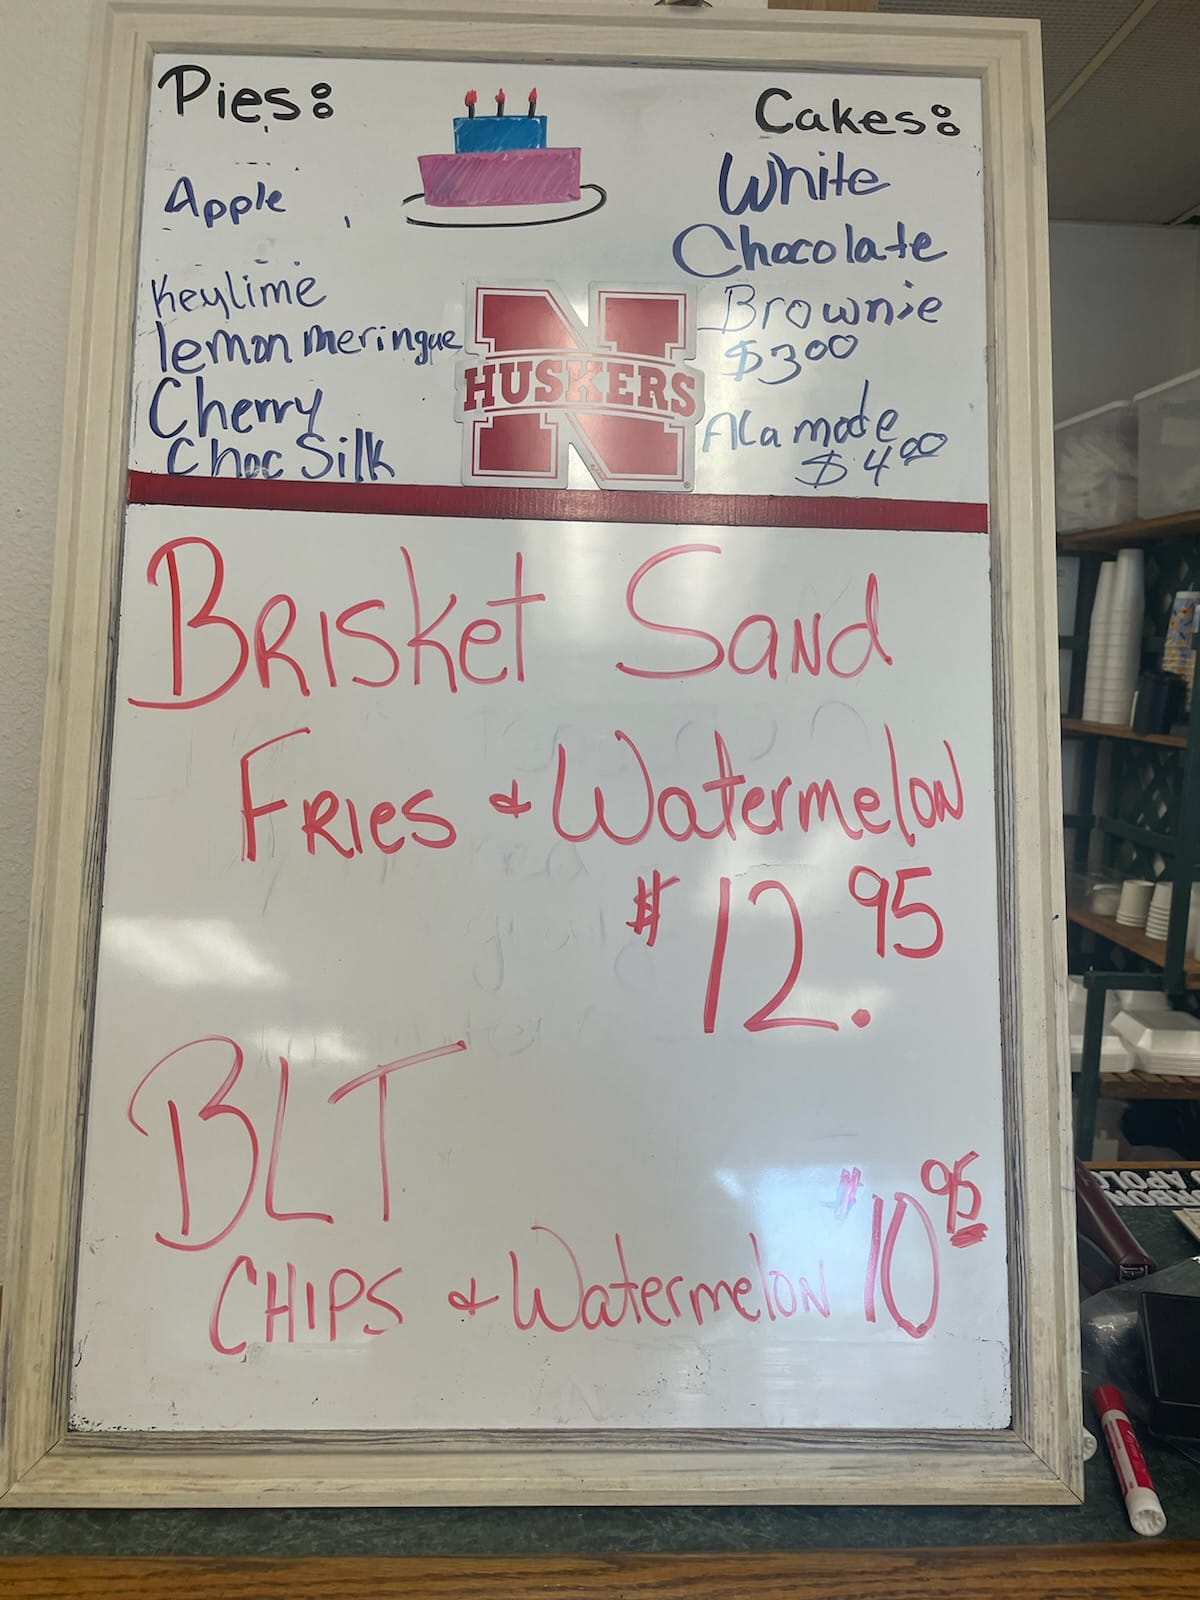 Pies:
Apple
Keylime
lemon meringue
Cherry
Choc Silk
Cakes:
White
Chocolate
Brownie
$3.00
Ala mode
$4.00
HUSKERS
Brisket Sand
Fries & Watermelon
$12.95
BLT
Chips & Watermelon $10.95